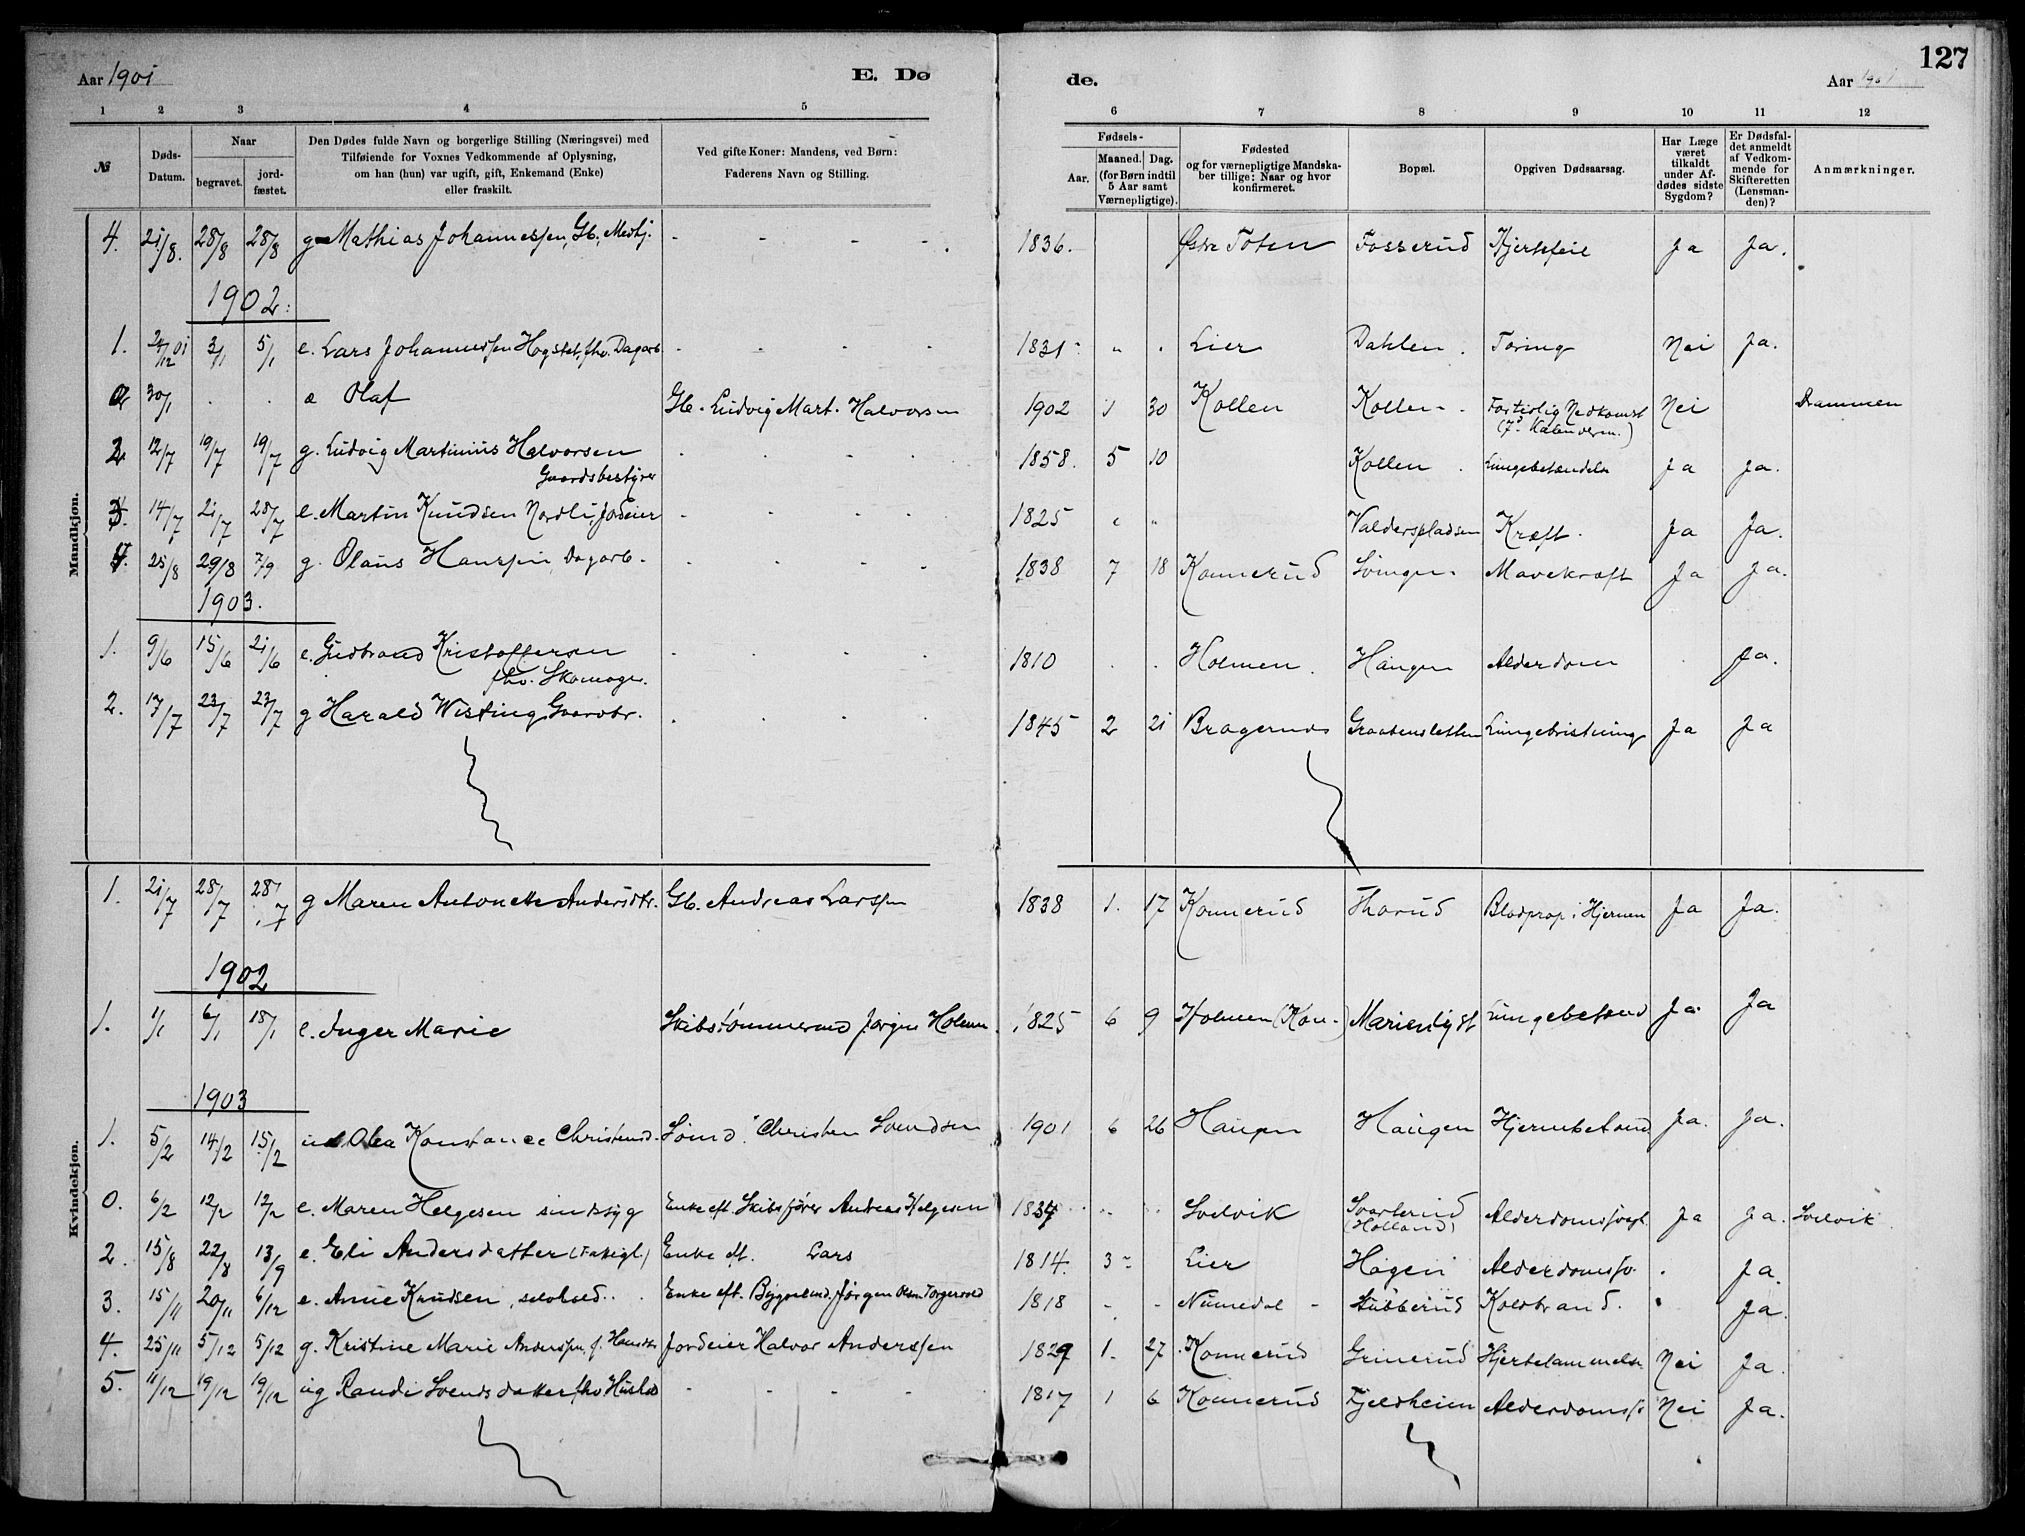 127
Aar 1901 E. Dø de. Aar 1901
1 2 3 4 5 6 7 8 9 10 11 12
№
Døds-Datum.
Naar
begravet.
jordfæstet.
Den Dødes fulde Navn og borgerlige Stilling (Næringsvei) med
Tilføiende for Voxnes Vedkommende af Oplysning,
om han (hun) var ugift, gift, Enkemand (Enke)
eller fraskilt.
Ved gifte Koner: Mandens, ved Børn:
Faderens Navn og Stilling.
Fødsels-
Aar.
Maaned. Dag.
(for Børn indtil
5 Aar samt
Værnepligtige).
Fødested
og for værnepligtige Mandskaber tillige: Naar og hvor
konfirmeret.
Bopæl.
Opgiven Dødsaarsag.
Har Læge
været
tilkaldt
under Afdødes sidste
Sygdom?
Er Dødsfaldet anmeldt
af Vedkommende for
Skifteretten
(Lensmanden)?
Anmærkninger.
Mandkjøn.
4. 21/8. 28/8 28/8 g Mathias Johannessen, Gb., Medhj. - - - - 1836. Østre Toten Fosserud Hjertefeil Ja Ja.
1902.
1. 24/12 01 3/1 5/1 e. Lars Johannessen Hogstet, fhv. Dagarb - - - - 1831 " " Lier Dahlen. Tæring Nei Ja.
0 30/1 . . Olaf Gb. Ludvig Mart. Halvorsen 1902 1 30 Kollen Kollen Fortidlig Nedkomst Nei Drammen
2 12/7 19/7 19/7 g. Ludvig Martinius Halvorsen - - - - 1858. 5 10 Kollen Lungebetændelse Ja Ja.
Gaardsbestyrer
3. 14/7 21/7 28/7 e. Martin Knudsen Nordli, Jordeier - - - - 1825 " " Valderspladsen Kræft. Ja Ja.
4. 25/8 29/8 7/9 g. Olaus Hanssen, Dagarb. - - - - 1838 7 18 Konnerud Svingen Mavekræft Ja Ja.
1903.
1. 9/6 15/6 21/6 e. Gudbrand Kristoffersen - - - - 1810 . . Holmen Haugen Alderdom . Ja.
fhv. Skomager.
2. 17/7 23/7 23/7 g Harald Wisting, Gaardbr. - - - - 1845 2 21 Bragernes Graatensletten Lungebristning Ja Ja
Kvindekjøn.
1. 21/7 28/7 28/7 g Maren Antonette Andersdtr. Gb. Andreas Larssen 1838 1. 17 Konnerud Thorud Blodprop i Hjernen Ja Ja.
1902
1. 1/1 6/1 18/1 e. Inger Marie Skibstømmermd Jørgen Holmen 1825 6 9 Holmen (Kon-) Marienlyst Lungebetænd Ja Ja
1903
1. 5/2 14/2 15/2 Olea Konstance Christensd. Christen Svendsen 1901 6 26 Haugen Haugen Hjernebetænd Ja. Ja.
0. 6/2 12/2 12/2 e. Maren Helgesen sindssyg Enke eft. Skibsfører Andreas Helgesen 1834 " " Svelvik Svarterud Alderdomssvagh. Ja Ja. Svelvik
(Holland)
2. 15/8 22/8 13/9 e. Eli Andersdatter (Fattigl) Enke eft. Lars 1814. 3 - Lier Hagen Alderdomssv. . Ja.
3. 15/11 20/11 6/12 e. Anne Knudsen, selvhold. Enke eft. Jørgen Olsen Torgersrød 1818 - - Numedal - Stubberud Koldbrand. . Ja.
4. 25/11 5/12 5/12 g. Kristine Marie Anderssen, f. Hansdtr Jordeier Halvor Anderssen 1829 1. 27 Konnerud Grinerud Hjertelammelse Nei Ja.
5. 11/12 19/12 19/12 ug Randi Svendsdatter fhv Hushold - - - - 1817 1 6 Konnerud Fjeldheim Alderdomssv Nei Ja.